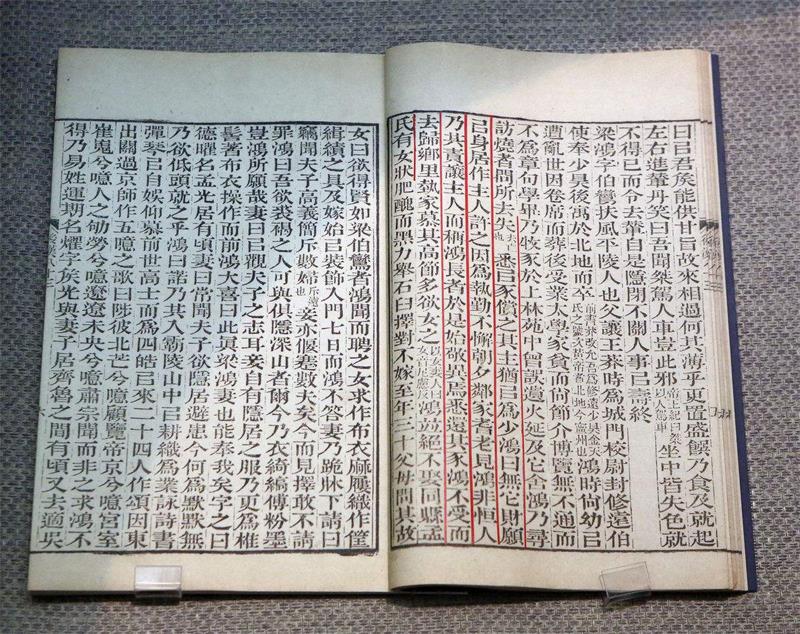 曰㠯君矦能供甘旨故來相過何其薄乎更置盛饌乃食及就起
左右進輦丹笑曰吾聞桀駕人車豈此邪帝王紀曰桀以人駕車坐中皆失色就
不得已而令去輦自是隱閉不關人事㠯壽終
梁鴻字伯鸞扶風平陵人也父讓王莽時為城門校尉封修遠伯
使奉少昊後寓於北地而卒前書莽改允吾為修遠少昊金天氏之號次黃帝者北地今寧州也鴻時尚幼㠯
遭亂世因卷席而葬後受業太學家貧而尚節介博覽無不通而
不為章句學畢乃牧豕於上林苑中曾誤遺火延及它舍鴻乃尋
訪燒者問所去失去亡也悉㠯豕償之其主猶㠯為少鴻曰無它財願
㠯身居作主人許之因為執勤不懈朝夕鄰家耆老見鴻非恒人
乃共責讓主人而稱鴻長者於是始敬異焉悉還其豕鴻不受而
去歸鄉里埶家慕其高節多欲女之以女妻人曰女音尼慮反鴻並絕不娶同縣孟
氏有女狀肥醜而黑力舉石臼擇對不嫁至年三十父母問其故
女曰欲得賢如梁伯鸞者鴻聞而聘之女求作布衣麻屨織作筐
緝績之具及嫁始㠯裝飾入門七日而鴻不荅妻乃跪牀下請曰
竊聞夫子高義簡斥數婦斥遠也妾亦偃蹇數夫矣今而見擇敢不請
罪鴻曰吾欲裘褐之人可與俱隱深山者爾今乃衣綺縞傅粉墨
豈鴻所願哉妻曰㠯觀夫子之志耳妾自有隱居之服乃更為椎
髻著布衣操作而前鴻大喜曰此真梁鴻妻也能奉我矣字之曰
德曜名孟光居有頃妻曰常聞夫子欲隱居避患今何為默默無
乃欲低頭就之乎鴻曰諾乃共入霸陵山中㠯耕織為業詠詩書
彈琴㠯自娛仰慕前世高士而為四皓㠯來二十四人作頌因東
出關過京師作五噫之歌曰陟彼北芒兮噫顧覽帝京兮噫宮室
崔嵬兮噫人之劬勞兮噫遼遼未央兮噫肅宗聞而非之求鴻不
得乃易姓運期名燿字矦光與妻子居齊魯之間有頃又去適吳